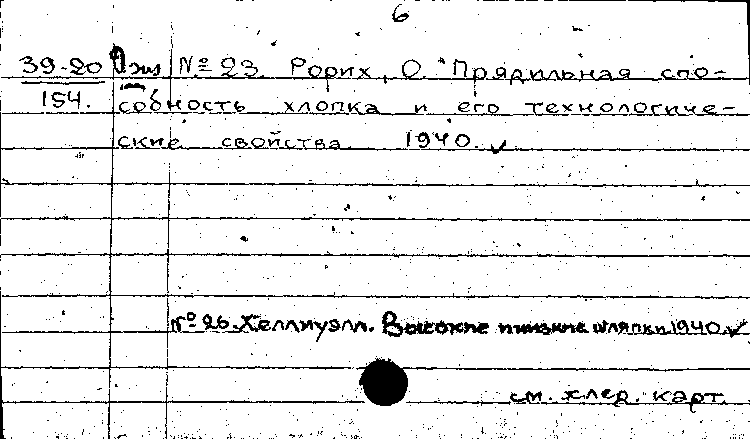 6
39-20 №23. Рорих, О. "Прядильная спо-
154. собность хлопка и его технологиче-
ские свойства 1940. ✓
№26. Хеллиуэлл. Высокие шляпки 1940 ✓
см. след. карт.